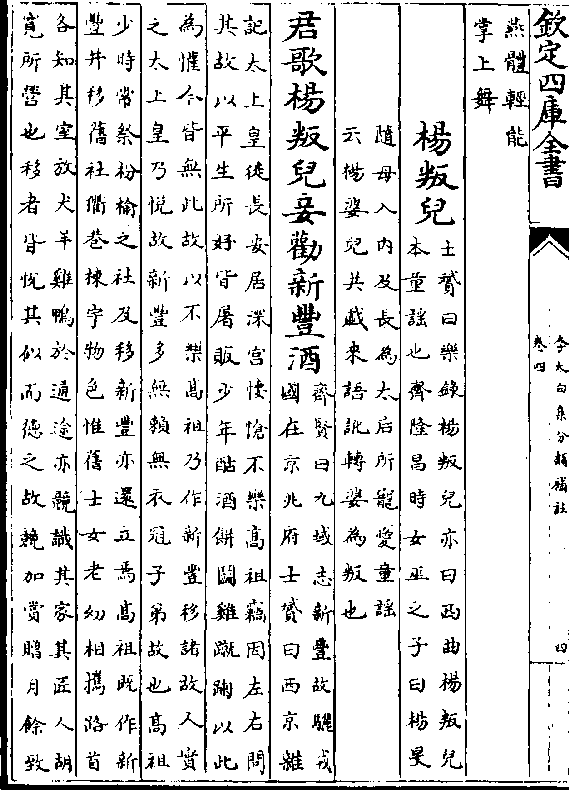 欽定四庫全書
李太白集分類補註
卷四
四
燕體輕能
掌上舞
楊叛兒
士贇曰樂錄楊叛兒亦曰西曲楊叛兒
本童謡也齊隆昌時女巫之子曰楊旻
隨母入內及長為太后所寵愛童謡
云楊婆兒共戲來語訛轉婆為叛也
君歌楊叛兒妾勸新豐酒
齊賢曰九域志新豐故驪戎
國在京兆府士贇曰西京雜
記太上皇徙長安居深宮悽愴不樂高祖竊因左右問
其故以平生所好皆屠販少年酤酒餅鬬雞蹴踘以此
為懽今皆無此故以不樂高祖乃作新豐移諸故人實
之太上皇乃悅故新豐多無賴無衣冠子弟故也高祖
少時常祭枌榆之社及移新豐亦還立焉高祖既作新
豐并移舊社衢巷棟宇物色惟舊士女老幼相攜路首
各知其室放犬羊雞鴨於通塗亦競識其家其匠人胡
寛所營也移者皆悅其似而德之故競加賞賜月餘致